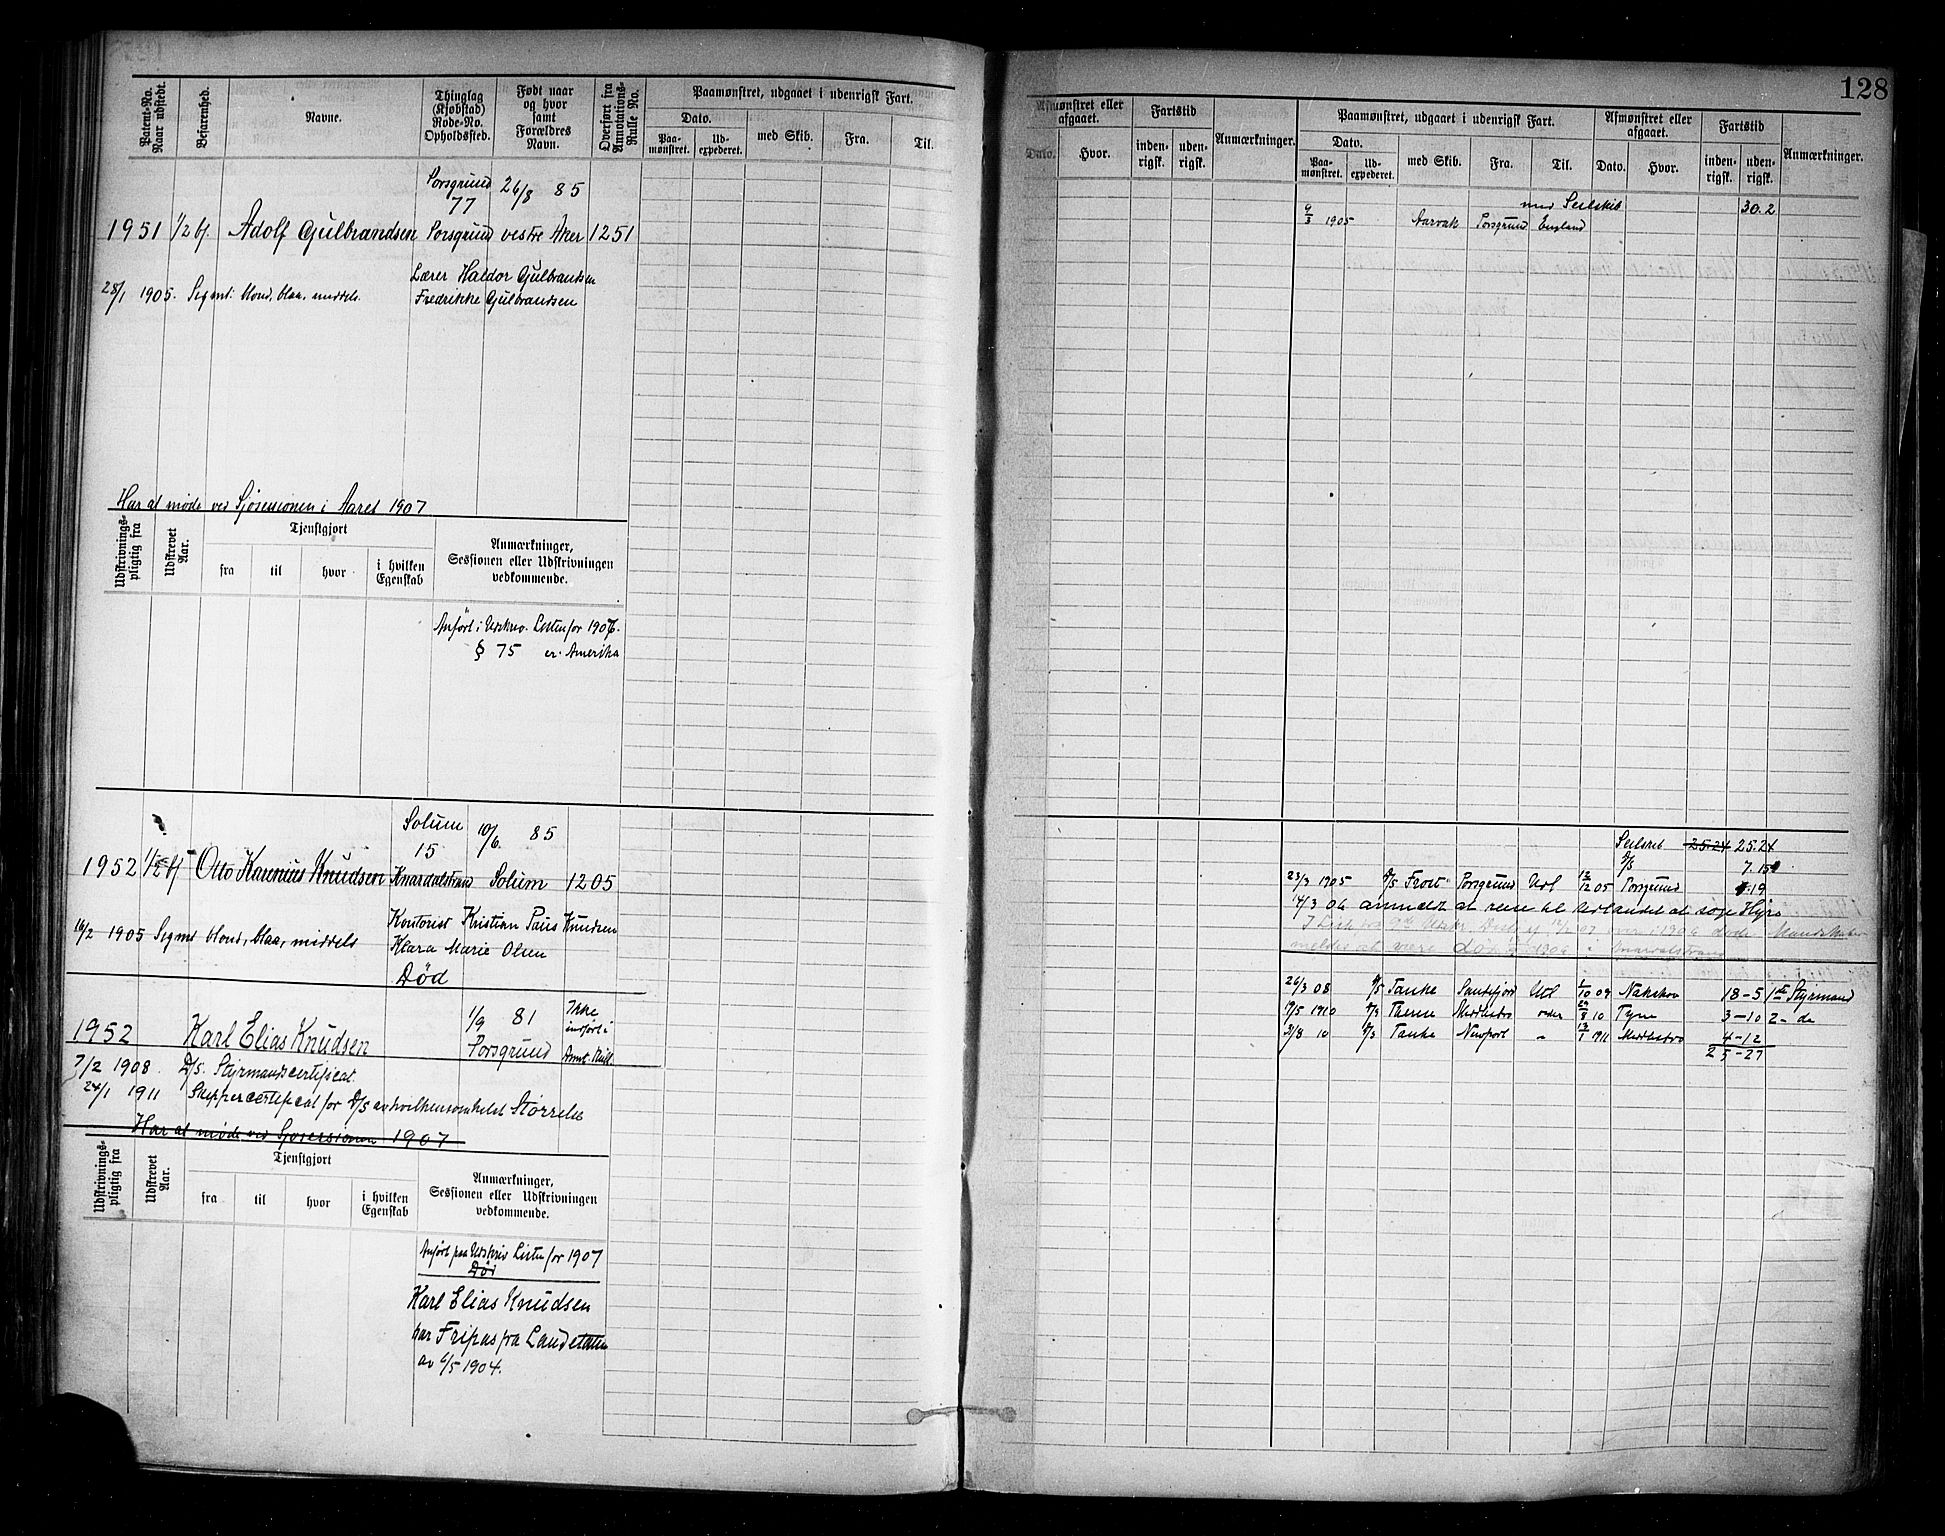 128
Patent-No. Naar udstedt.
Befarenhed.
Navne.
Thinglag (Kjøbstad) Rode-No. Opholdssted.
Født naar og hvor samt Forældres Navn.
Overført fra Annotations-Rulle No.
Paamønstret, udgaaet i udenrigsk Fart.
Dato.
Paa-mønstret.
Ud-expederet.
med Skib.
Fra.
Til.
Porsgrund 26/8 85
77
1951 1/2 bf. Adolf Gulbrandsen Porsgrund vestre Aker 1251
Lærer Haldor Gulbrandsen
28/1 1905. Sigmt: blond, blaa, middels. Fredrikke Gulbrandsen
Har at møde ved Sjøsessionen i Aaret 1907
Udskrivnings-pligtig fra
Udskrevet Aar.
Tjenstgjort
fra
til
hvor
i hvilken Egenskab
Anmærkninger, Sessionen eller Udskrivningen vedkommende.
Anført i Udskriv. Listen for 1907.
§ 75 er: Amerika
Solum 10/6 85
15
1952 1/2 bf Otto Knudsen Knardalstrand Solum 1205
Kontorist Kristian Paus Knudsen
16/2 1905 Sigmt blond, blaa, middels Klara Marie Olsen
Død
1/9 81 Ikke indført i
1952 Karl Elias Knudsen Porsgrund Annt. Rull.
7/2 1908. D/S. Styrmandscertificat.
24/1 1911 Skippercertificat for D/S av hvilkensomhelst Størrelse
Har at møde ved Sjøsessionen 1907
Udskrivnings-pligtig fra
Udskrevet Aar.
Tjenstgjort
fra
til
hvor
i hvilken Egenskab
Anmærkninger, Sessionen eller Udskrivningen vedkommende.
Anført paa Udskriv Listen for 1907
Død
Karl Elias Knudsen
har Fripas fra Landetaten
av 6/5 1904.
Afmønstret eller afgaaet.
Dato.
Hvor.
Fartstid
inden-rigsk.
uden-rigsk.
Anmærkninger.
Paamønstret, udgaaet i udenrigsk Fart.
Dato.
Paa-mønstret.
Ud-expederet.
med Skib.
Fra.
Til.
Afmønstret eller afgaaet.
Dato.
Hvor.
Fartstid
inden-rigsk.
uden-rigsk.
Anmærkninger.
med Seilskib 30.2
9/3 1905 Aarvak Porsgrund England
Seilskib 25.24 25.24
D/S 7.15
23/3 1905 D/S Frost Porsgrund Udl 12/12 05 Porsgrund 19
14/3 06 anmeldt at reise til Udlandet at søge Hyre
26/3 08 D/S Tanke Sandefjord Udl 1/10 09 Nakskov 18-5 1ste Styrmand
19/5 1910 Middlesbro 8 10 Tyne 3-10 2- do
3/8 10 D/S Tanke Newport " 13/1 1911 Middlesbro 4-12
25-27